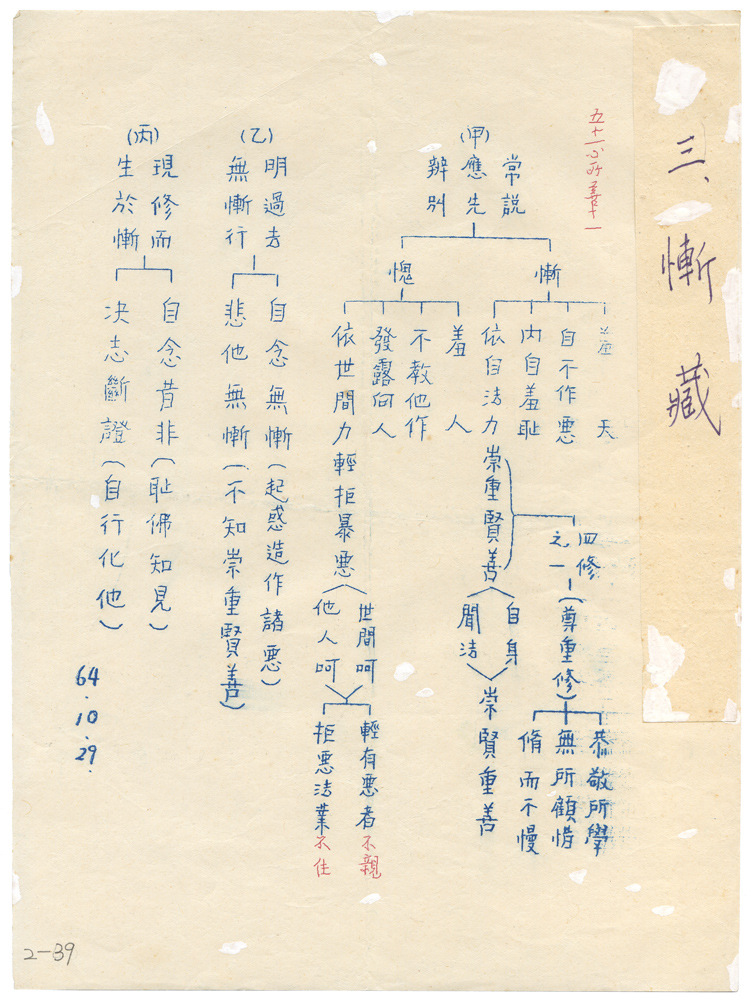 三、慚藏
五十一心所善十一
(甲)
常説
應先
辨別
慚
羞天
自不作惡
内自羞恥
依自法力崇重賢善
四修
之一
(尊重修)
恭敬所學
無所顧惜
脩而不慢
自身
聞法
崇賢重善
愧
羞人
不教他作
發露向人
依世間力輕拒暴惡
世間呵
他人呵
輕有惡者不親
拒惡法業不住
(乙)
明過去
無慚行
自念無慚(起惑造作諸惡)
悲他無慚(不知崇重賢善)
(丙)
現修而
生於慚
自念昔非(恥佛知見)
決志斷證(自行化他)
64.10.29.
2-39